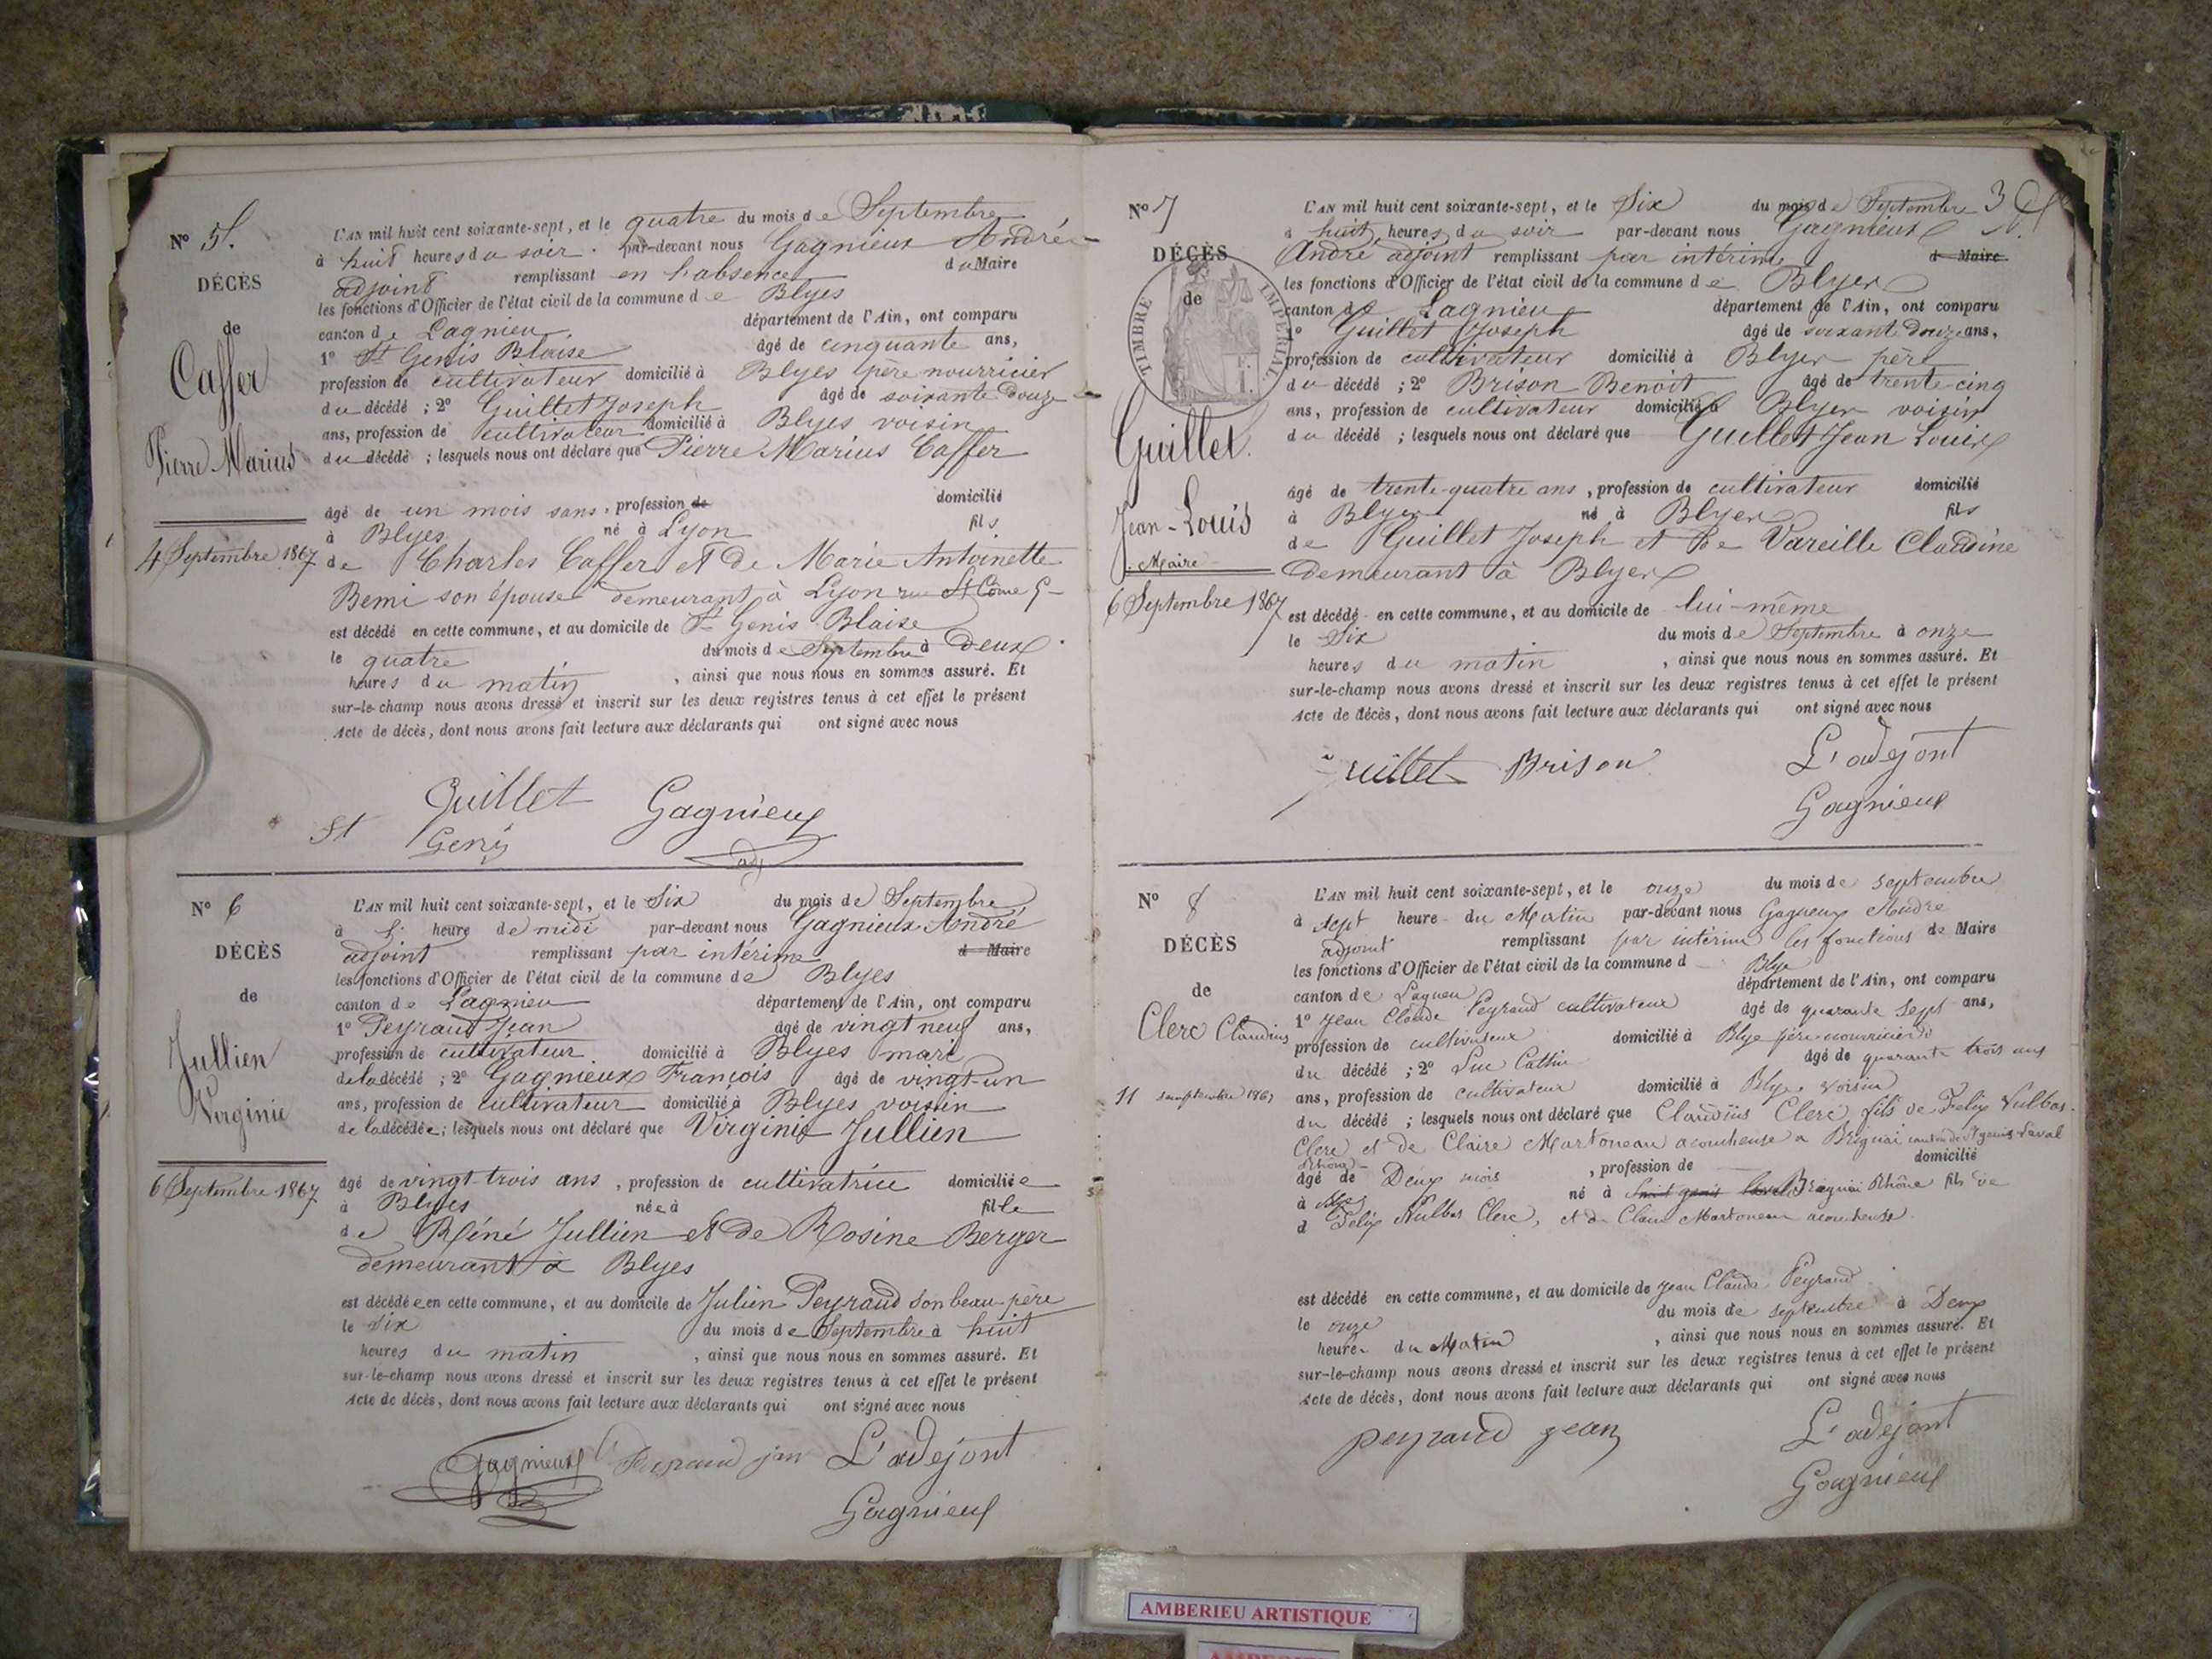 N° 5.
DÉCÈS
de
Caffer
Pierre Marius
4 Septembre 1867
L'AN mil huit cent soixante-sept, et le quatre du mois de Septembre
à huit heures du soir. par-devant nous Gagnieux André
adjoint remplissant en l'absence du Maire
les fonctions d'Officier de l'état civil de la commune de Blyes
canton de Lagnieu département de l'Ain, ont comparu
1° St Genis Blaise âgé de cinquante ans,
profession de cultivateur domicilié à Blyes père nourricier
du décédé ; 2° Guillet Joseph âgé de soixante douze
ans, profession de cultivateur domicilié à Blyes voisin
du décédé ; lesquels nous ont déclaré que Pierre Marius Caffer
âgé de un mois sans, profession de domicilié
à Blyes né à Lyon fils
de Charles Caffer et de Marie Antoinette
Bemi son épouse demeurant à Lyon rue St Côme 5
est décédé en cette commune, et au domicile de St Genis Blaise
le quatre du mois de Septembre à Deux
heures du matin, ainsi que nous nous en sommes assuré. Et
sur-le-champ nous avons dressé et inscrit sur les deux registres tenus à cet effet le présent
Acte de décès, dont nous avons fait lecture aux déclarants qui ont signé avec nous
Guillet Gagnieux
St Genis
adj
N° 6
DÉCÈS
de
Jullien
Virginie
6 Septembre 1867
L'AN mil huit cent soixante-sept, et le Six du mois de Septembre
à heure de midi par-devant nous Gagnieux André
adjoint remplissant par intérim d Maire
les fonctions d'Officier de l'état civil de la commune de Blyes
canton de Lagnieu département de l'Ain, ont comparu
1° Peyraud Jean âgé de vingt neuf ans,
profession de cultivateur domicilié à Blyes mari
de la décédé ; 2° Gagnieux François âgé de vingt-un
ans, profession de cultivateur domicilié à Blyes voisin
de la décédée ; lesquels nous ont déclaré que Virginie Jullien
âgé de vingt trois ans, profession de cultivatrice domiciliée
à Blyes née à fille
de Réné Jullien et de Rosine Berger
demeurant à Blyes
est décédée en cette commune, et au domicile de Julien Peyraud son beau-père
le six du mois de Septembre à huit
heures du matin, ainsi que nous nous en sommes assuré. Et
sur-le-champ nous avons dressé et inscrit sur les deux registres tenus à cet effet le présent
Acte de décès, dont nous avons fait lecture aux déclarants qui ont signé avec nous
Gagnieux Peyraud jan L'adejont
Gagnieux
N° 7
DÉCÈS
de
TIMBRE IMPÉRIAL
Guillet
Jean-Louis
Maire
6 Septembre 1867
L'AN mil huit cent soixante-sept, et le Six du mois de Septembre
à huit heures du soir par-devant nous Gagnieux
André adjoint remplissant par intérim d Maire
les fonctions d'Officier de l'état civil de la commune de Blyes
canton de Lagnieu département de l'Ain, ont comparu
1° Guillet Joseph âgé de soixant douze ans,
profession de cultivateur domicilié à Blyes père
du décédé ; 2° Brison Benoit âgé de trente-cinq
ans, profession de cultivateur domicilié à Blyes voisin
du décédé ; lesquels nous ont déclaré que Guillet Jean Louis
âgé de trente-quatre ans, profession de cultivateur domicilié
à Blyes né à Blyes fils
de Guillet Joseph et de Vareille Claudine
demeurant à Blyes
est décédé en cette commune, et au domicile de lui-même
le Six du mois de Septembre à onze
heures du matin, ainsi que nous nous en sommes assuré. Et
sur-le-champ nous avons dressé et inscrit sur les deux registres tenus à cet effet le présent
Acte de décès, dont nous avons fait lecture aux déclarants qui ont signé avec nous
Guillet Brison L'adejont
Gagnieux
N° 8
DÉCÈS
de
Clerc Claudius
11 1867
L'AN mil huit cent soixante-sept, et le onze du mois de septembre
à sept heure du Matin par-devant nous Gagneux Andre
adjoint remplissant par intérim les fonctions de Maire
les fonctions d'Officier de l'état civil de la commune d Blye
canton de Lagneu département de l'Ain, ont comparu
1° Jean Claude Peyraud cultivateur âgé de quarante sept ans,
profession de cultivateur domicilié à Blye père nourricier
du décédé ; 2° Luc Cattin âgé de quarante trois ans
ans, profession de cultivateur domicilié à Blye voisin
du décédé ; lesquels nous ont déclaré que Claudius Clerc fils de Felix Vulbas
Clerc et de Claire Martoneau acoucheuse a Brignai canton de St genis Laval
Rhône
âgé de Deux mois, profession de domicilié
à né à Brignai Rhône fils de
d Felix Vulbas Clerc, et de Claire Martoneau acoucheuse
est décédé en cette commune, et au domicile de Jean Claude Peyraud
le onze du mois de septembre à Deux
heures du Matin, ainsi que nous nous en sommes assuré. Et
sur-le-champ nous avons dressé et inscrit sur les deux registres tenus à cet effet le présent
Acte de décès, dont nous avons fait lecture aux déclarants qui ont signé avec nous
peyraud jean L'adejont
Gagnieux
AMBERIEU ARTISTIQUE